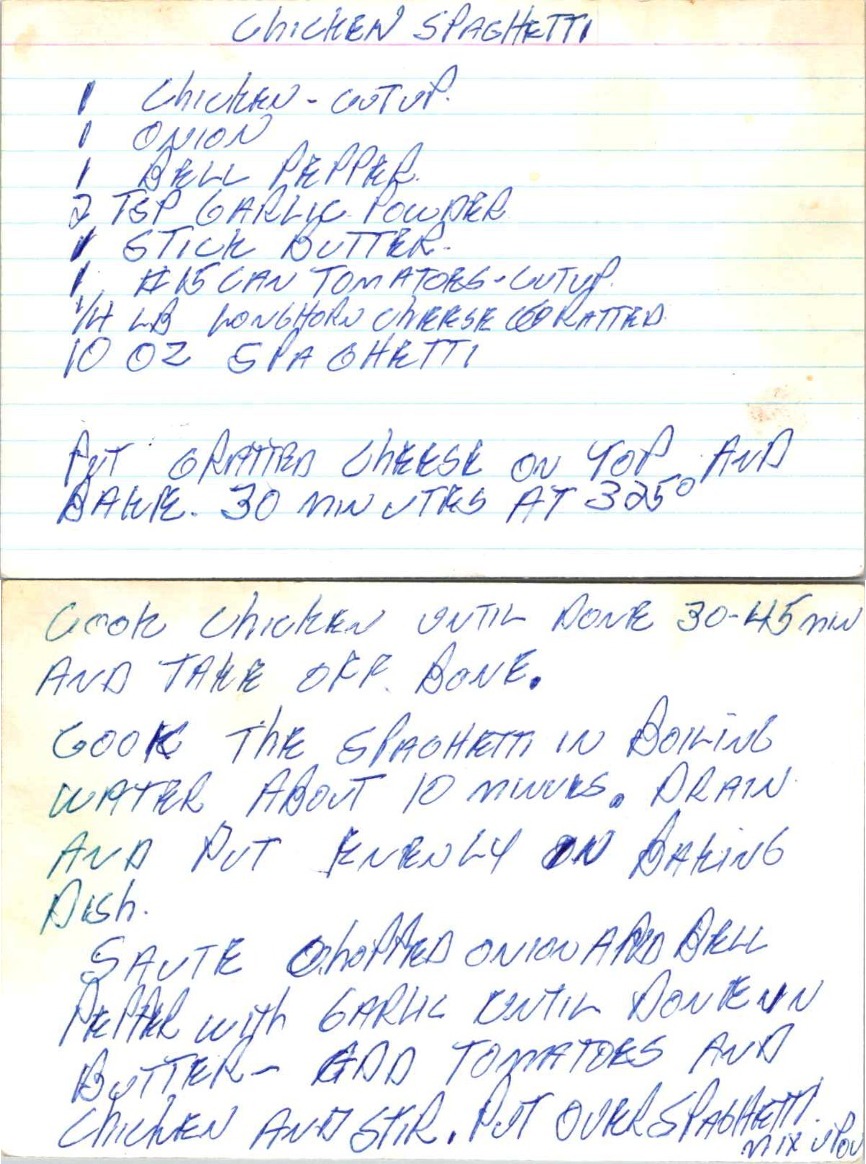 CHICKEN SPAGHETTI
1 CHICKEN - CUTUP.
1 ONION
1 BELL PEPPER.
2 TSP GARLIC POWDER
1 STICK BUTTER-
1 #15 CAN TOMATOES-CUTUP.
1/4 LB LONGHORN CHEESE GRATTED.
10 OZ SPAGHETTI
PUT GRATTED CHEESE ON TOP AND
BAKE. 30 MINUTES AT 325°
COOK CHICKEN UNTIL DONE 30-45 MIN
AND TAKE OFF BONE.
COOK THE SPAGHETTI IN BOILING
WATER ABOUT 10 MINUES. DRAIN
AND PUT EVENLY IN BAKING
DISH.
SAUTE CHOPPED ONION AND BELL
PEPPER WITH GARLIC UNTIL DONE IN
BUTTER- ADD TOMATOES AND
CHICKEN AND STIR. PUT OVER SPAGHETTI.
MIX